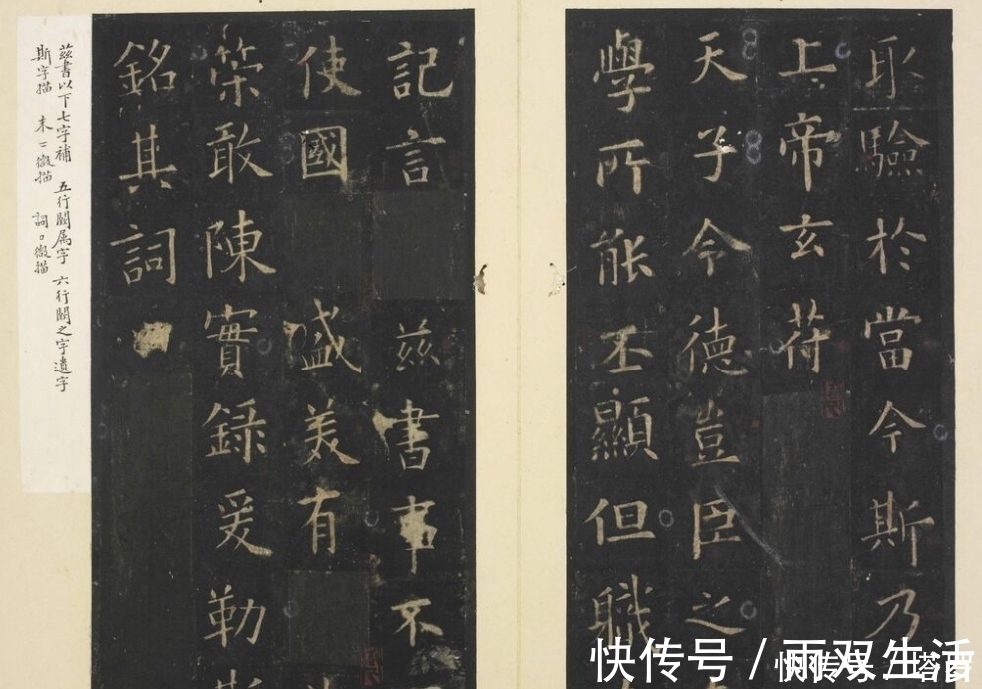 取驗於當今斯乃
上帝玄符
天子令德豈臣之
學所能丕顯但職
記言茲書事不
使國盛美有
築敢陳實錄爰勒
銘其詞
茲書以下七字補 五行闕屬字 六行闕之字遺字
斯字描 末二微描 詞口微描
快传号 / 雨双生活